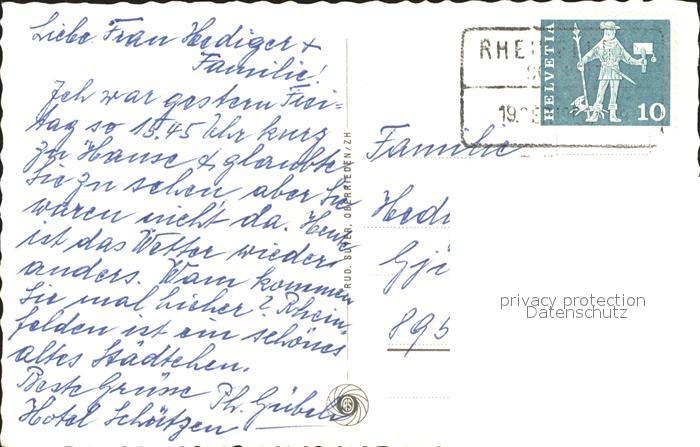 Liebe Frau Hediger +
Familie!
Ich war gestern Frei-
tag so 15.45 Uhr kurz
zu Hause + glaubte
Sie zu sehen, aber Sie
waren nicht da. Heute
ist das Wetter wieder
anders. Wann kommen
Sie mal hieher? Rhein-
felden ist ein schönes
altes Städtchen.
Beste Grüsse Ph. Gübeli
Hotel Schützen
RUD. SUTER, OBERRIEDEN/ZH
RHEI
HELVETIA
10
Familie
Hedi
Gji
895
privacy protection
Datenschutz